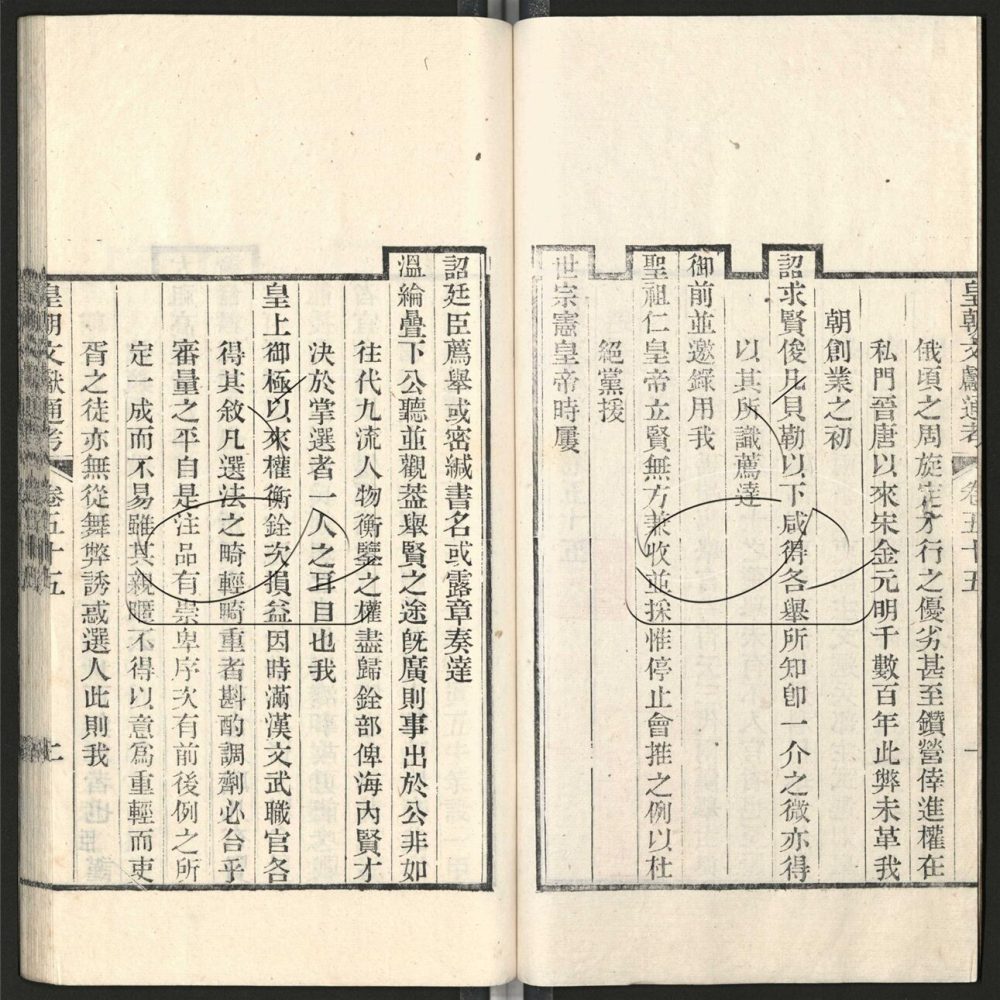 皇朝文獻通考 卷五十五 一
俄頃之周旋定才行之優劣甚至鑽營倖進權在
私門晉唐以來宋金元明千數百年此弊未革我
朝創業之初
詔求賢俊凡貝勒以下咸得各舉所知卽一介之微亦得
以其所識薦達
御前並邀錄用我
聖祖仁皇帝立賢無方兼收並採惟停止會推之例以杜
絕黨援
世宗憲皇帝時屢
詔廷臣薦舉或密緘書名或露章奏達
溫綸疊下公聽並觀葢舉賢之途旣廣則事出於公非如
往代九流人物衡鑒之權盡歸銓部俾海內賢才
決於掌選者一人之耳目也我
皇上御極以來權衡銓次損益因時滿漢文武職官各
得其敘凡選法之畸輕畸重者斟酌調劑必台乎
審量之平自是注品有崇卑序次有前後例之所
定一成而不易雖其親暱不得以意爲重輕而吏
胥之徒亦無從舞弊誘惑選人此則我
皇朝文獻通考 卷五十五 二